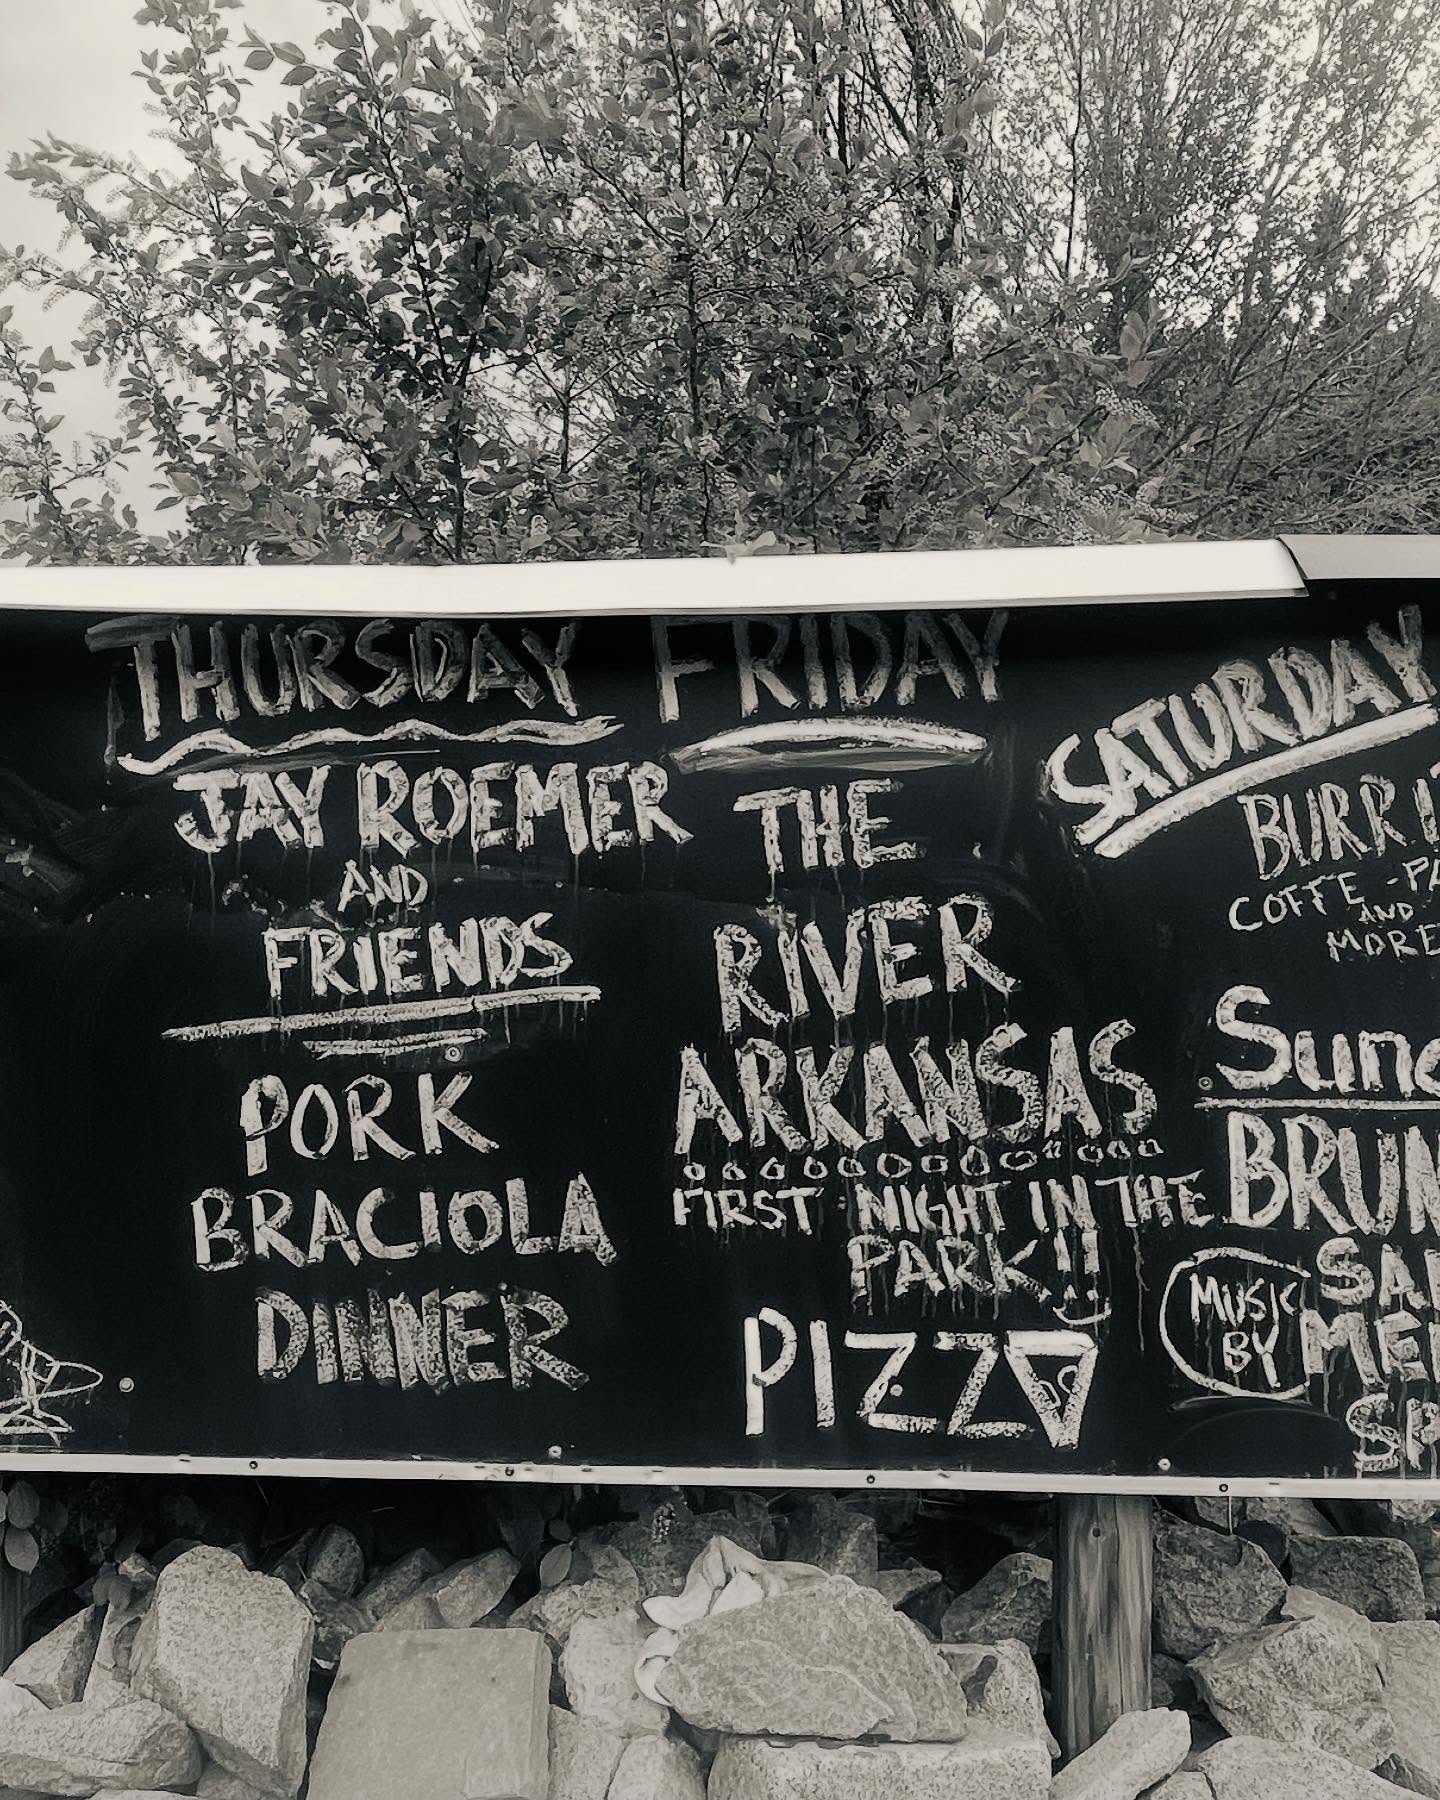 THURSDAY
JAY ROEMER
AND
FRIENDS
PORK
BRACIOLA
DINNER
FRIDAY
THE
RIVER
ARKANSAS
FIRST NIGHT IN THE
PARK!!
PIZZA
SATURDAY
COFFE
AND
MORE
MUSIC
BY